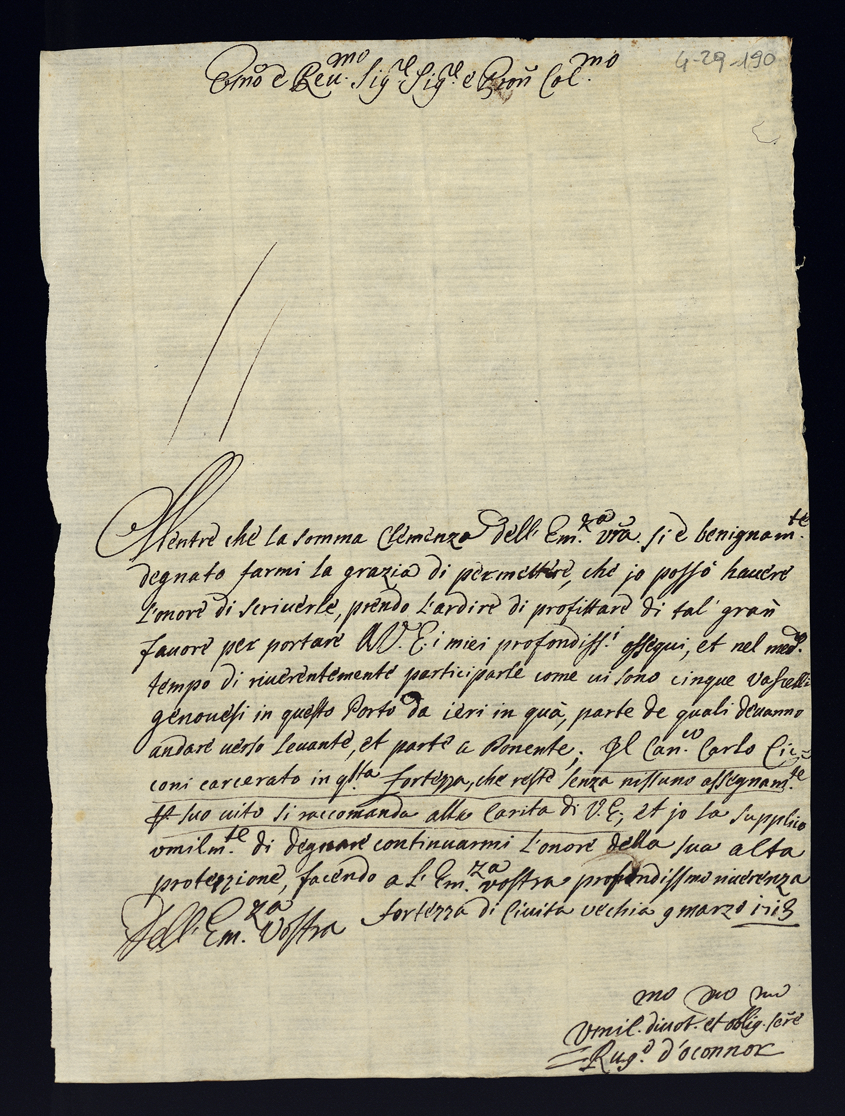 4-29-190
Em̃o e Reu.mo Sig.re Sig.re e Pron̄ Col.mo
Mentre che la somma Clemenza dell'Em.za vr̃a si è benignam.te
degnato farmi la grazia di permettere, che jo possò hauere
l'onore di scriuerle, prendo l'ardire di profittare di tal' gran̄
fauore per portare A V. E. i miei profondiss.i ossequi, et nel med.o
tempo di riuerentemente participarle come ui sono cinque Vascelli
genouesi in questo Porto da ieri in quà, parte de quali deuanno
andare uerso Leuante, et parte a Ponente. Il Can.co Carlo Cic=
coni carcerato in q.sta fortezza, che resta senza nissuno assegnam.te
suo uito si raccomanda alla Carita di V. E; et jo la supplico
vmilm.te di degnare continuarmi l'onore della sua alta
protezzione, facendo a l'Em.za vostra profondissmo riuerenza
Dell'Em.za Vostra fortezza di Ciuita vechia 9 marzo 1713
Vmil.mo diuot.mo et oblig.mo ser̃e
Rug.o d'oconnor